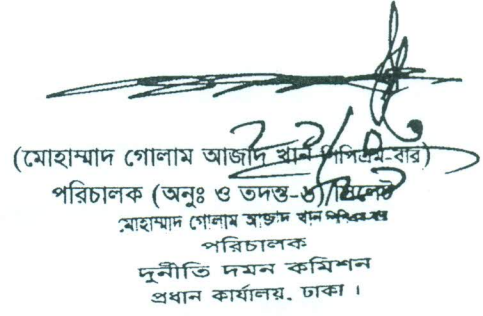 (মোহাম্মাদ গোলাম আজাদ খান পিপিএম-বার)
পরিচালক (অনুঃ ও তদন্ত-৬)
মোহাম্মাদ গোলাম আজাদ খান পিপিএম-বার
পরিচালক
দুর্নীতি দমন কমিশন
প্রধান কার্যালয়, ঢাকা ।